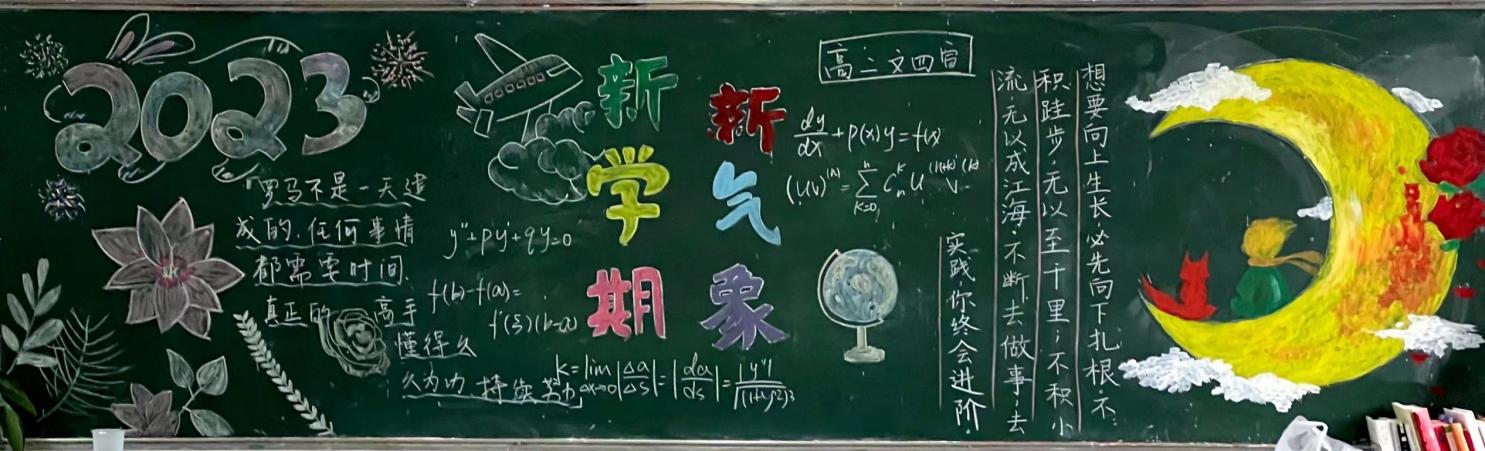 2023
"罗马不是一天建
成的,任何事情
都需要时间,
真正的高手
懂得久
久为功,持续努力
y''+py'+qy=0
f(b)-f(a)=
f'(ξ)(b-a)
新学期
新气象
高二文四
dy/dx+p(x)y=f(x)
(uv)^(n)=∑_{K=0}^{n} C_n^K u^(n-k) v^(k)
k=lim_{Δx→0}|Δa/Δs|=|da/ds|=|y''|/√(1+y'²)³
想要向上生长,必先向下扎根,不
积跬步,无以至千里;不积小
流,无以成江海,不断去做事去
实践,你终会进阶.